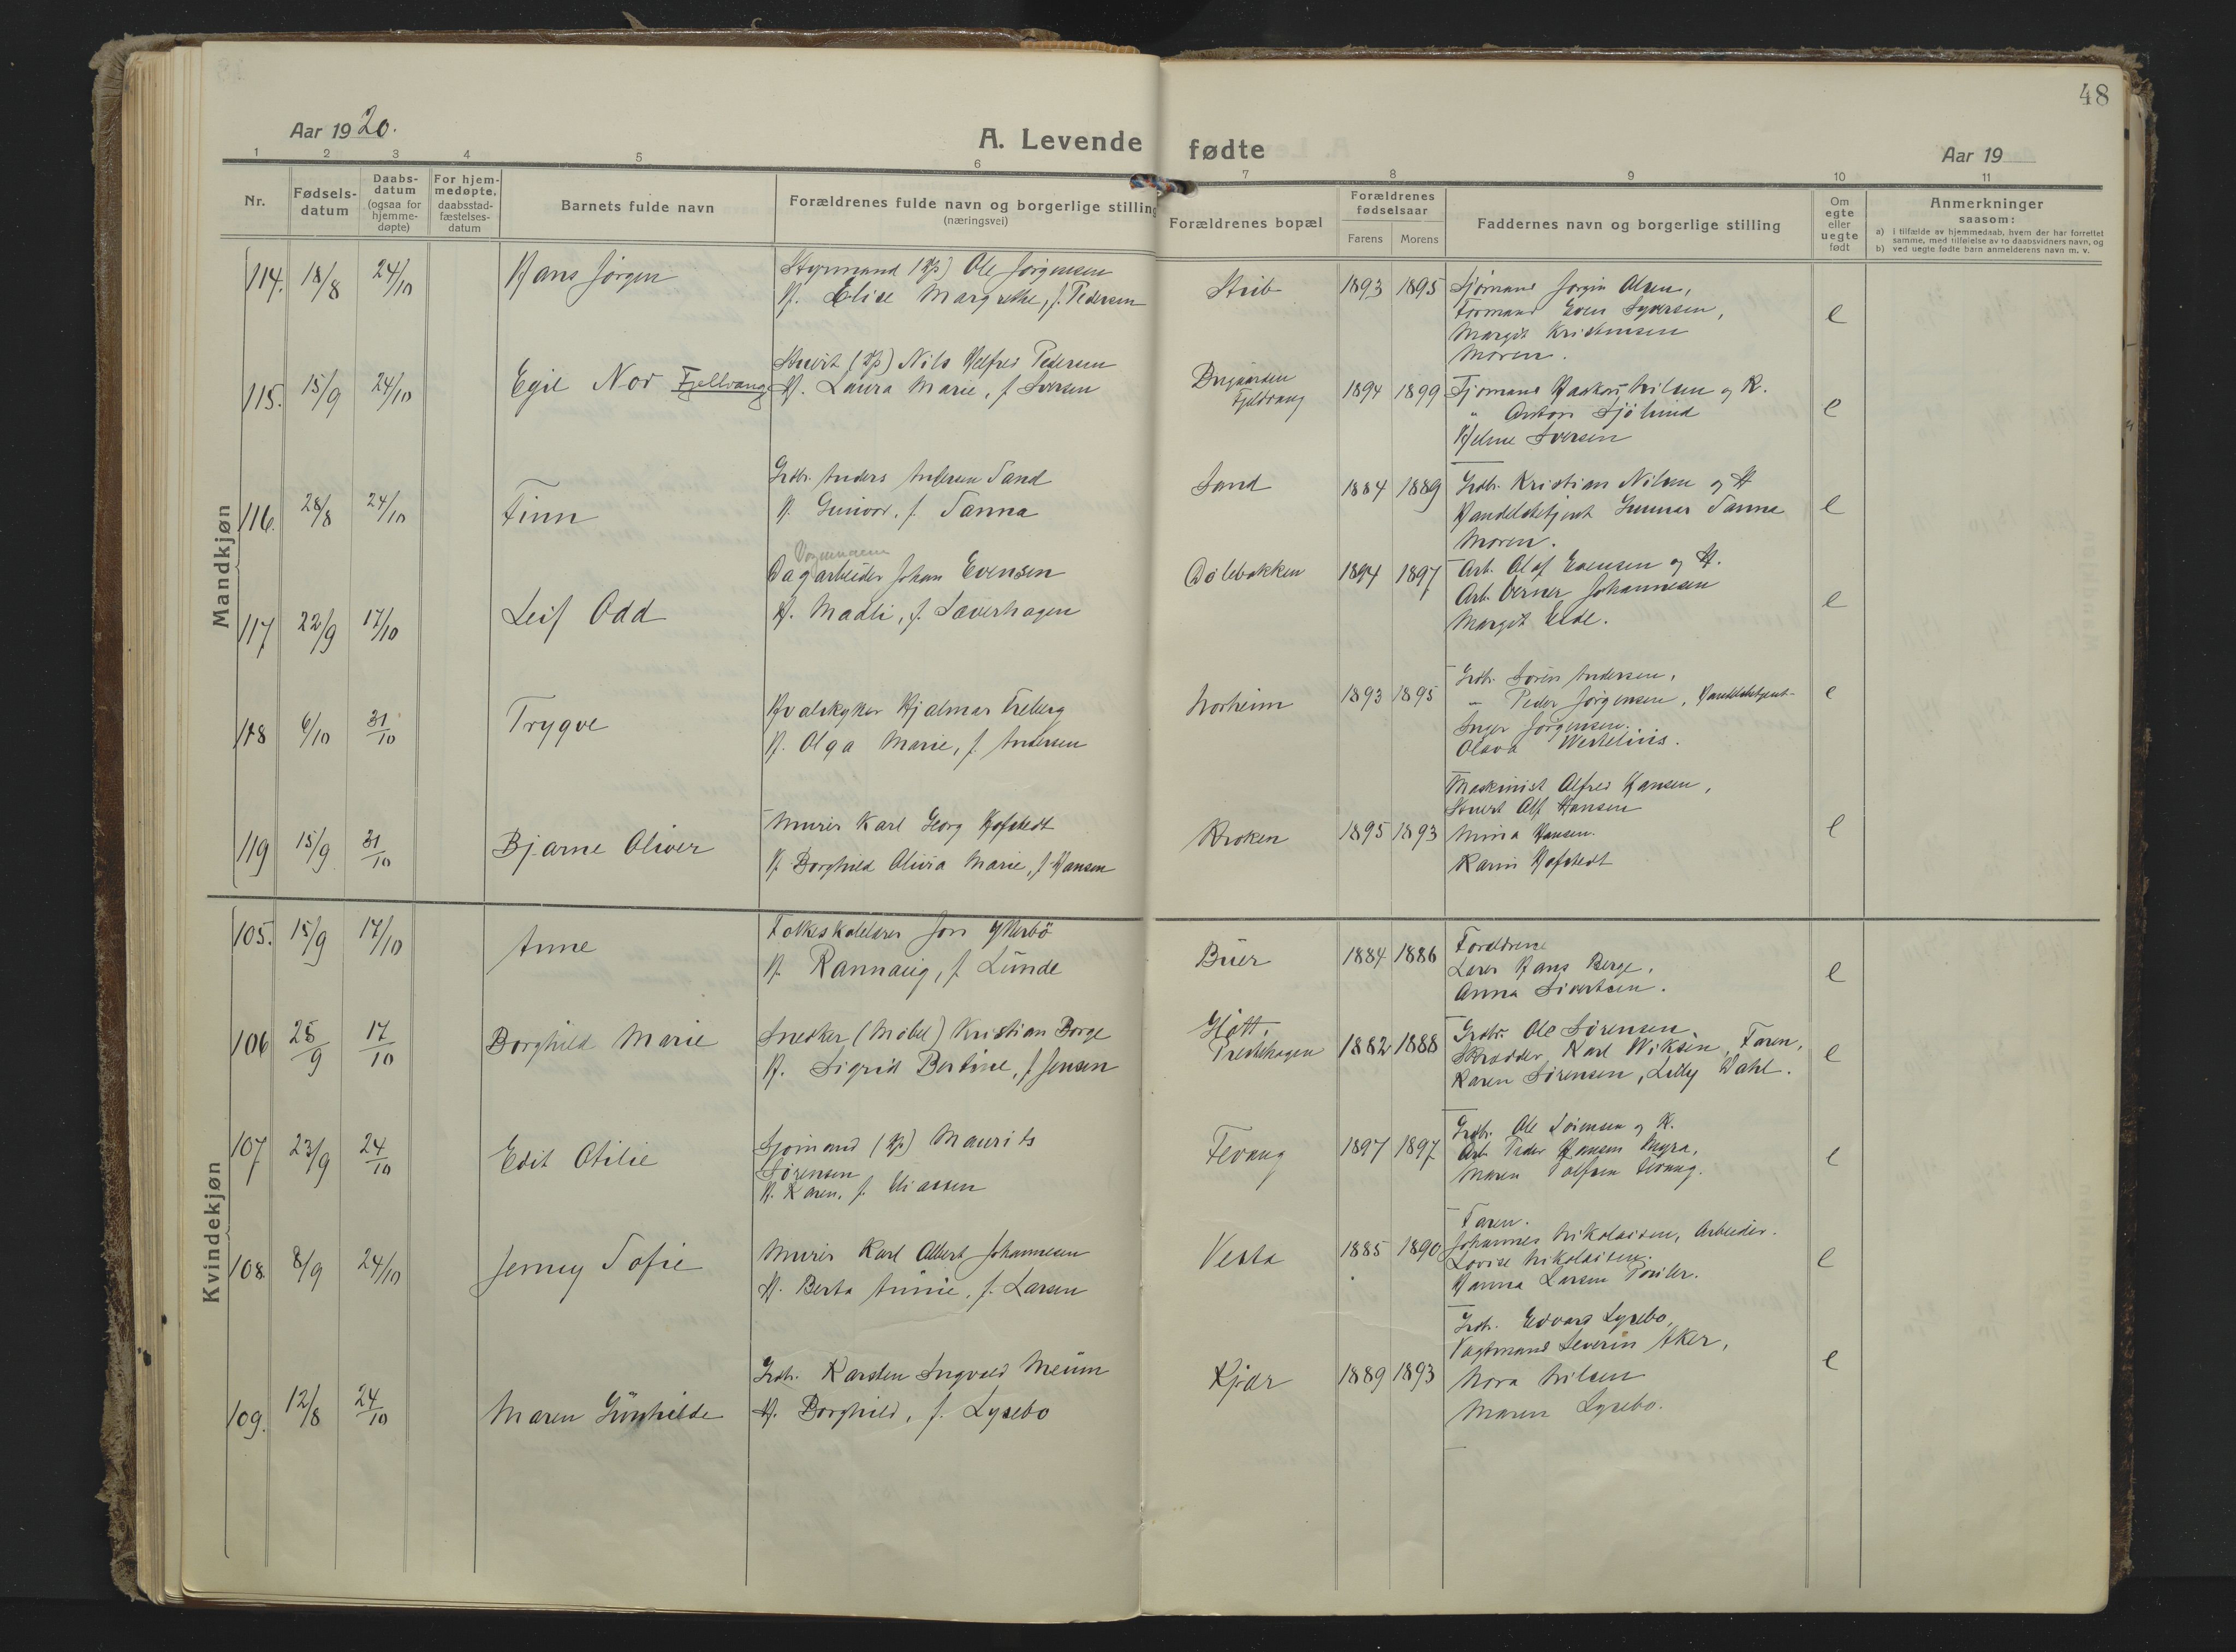 48
Aar 1920.
A. Levende fødte
Aar 19
1 2 3 4 5 6 7 8 9 10 11
Nr.
Fødsels-
datum
Daabs-
datum
(ogsaa for
hjemme-
døpte)
For hjem-
medøpte,
daabsstad-
fæstelses-
datum
Barnets fulde navn
Forældrenes fulde navn og borgerlige stilling
(næringsvei)
Forældrenes bopæl
Forældrenes
fødselsaar
Farens Morens
Faddernes navn og borgerlige stilling
Om
egte
eller
uegte
født
Anmerkninger
saasom:
a) i tilfælde av hjemmedaab, hvem der har forrettet
samme, med tilføielse av to daabsvidners navn, og
b) ved uegte fødte barn anmelderens navn m. v.
Mandkjøn
114. 18/8 24/10 Hans Jörgen
Styrmand (Hp) Ole Jörgensen
H. Elise Margrethe, f. Pedersen
Strib 1893 1895
Sjömand Jörgin Olsen,
Formand Even Syversen,
Margit Kristensen
Moren.
e
115. 15/9 24/10 Egil Nor Fjellvang
Stuert (Hp) Nils Helfred Pedersen
H. Laura Marie, f. Iversen
Fjeldvang
1894 1899
Sjömand Haakon Nilsen og H.
" Anton Sjölund
Helene Iversen
e
116. 28/8 24/10 Finn
Grdbr. Anders Andersen Sand
H. Gunvor, f. Sanna
Sand 1884 1889
Grdbr. Kristian Nilsen og H
Handelsbetjent Gunnar Sanna
Moren.
e
117 22/9 17/10 Leif Odd
Dagarbeider Johan Evensen
H. Madli, f. Saverhagen
Dölebakken 1894 1897
Arb. Olaf Evensen og H.
Arb. Verner Johannesen
Margit Eide.
e
118 6/10 31/10 Trygve
Hvalskytter Hjalmar Freberg
H. Olga Marie, f. Andersen
Norheim 1893 1895
Grdbr. Sören Andersen,
" Peder Jörgensen, Handelsbetjent
Inger Jörgensen.
Olava Westeliis.
e
119 15/9 31/10 Bjarne Oliver
Murer Karl Georg Hofstedt
H. Borghild Olivia Marie, f. Hansen
Kroken 1895 1893
Maskinist Alfred Hansen,
Stuert Alf Hansen
Mina Hansen.
Karin Hofstedt
e
Kvindekjøn
105. 15/9 17/10 Anne
Folkeskolelærer Jon Ytterbö
H. Rannaug, f. Lunde
Buer 1884 1886
Foreldrene
Lærer Hans Berge,
Anna Sivertsen.
e
106 25/9 17/10 Borghild Marie
Snedker (Möbel) Kristian Borge
H. Sigrid Bertine, f. Jensen
Prestehagen 1882 1888
Grdbr. Ole Sörensen,
Skrædder Karl Wiksén, Faren,
Karen Sörensen, Lilly Dahl.
e
107 23/9 24/10 Edit Otilie
Sjömand (Hp) Maurits
Sörensen
H. Karen, f. Eliassen
Tevang 1897 1897
Grdbr. Ole Sörensen og H.
Arb. Peder Hansen Myra,
Maren Tevang.
e
108 8/9 24/10 Jenny Sofie
Murer Karl Albert Johannesen
H. Berta Annie, f. Larsen
Vesta 1885 1890
Faren.
Johannes Nikolaisen, Arbeider.
Lovise Nikolaisen.
Hanna Larsen
e
109. 12/8 24/10 Maren Gunhilde
Grdbr. Karsten Ingvald Meum
H. Borghild, f. Lysebo
Kjær 1889 1893
Grdbr. Edvard Lysebo,
Vagtmand Severin Aker,
Nora Nilsen
Maren Lysebo.
e